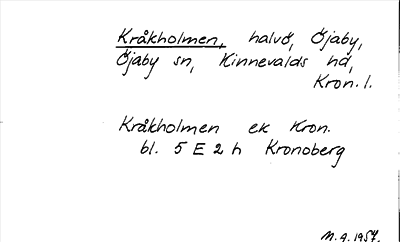 Kråkholmen, halvö, Öjaby,
Öjaby sn, Kinnevalds hd,
Kron. l.
Kråkholmen ek Kron.
bl. 5 E 2 h Kronoberg
M.A. 1957.